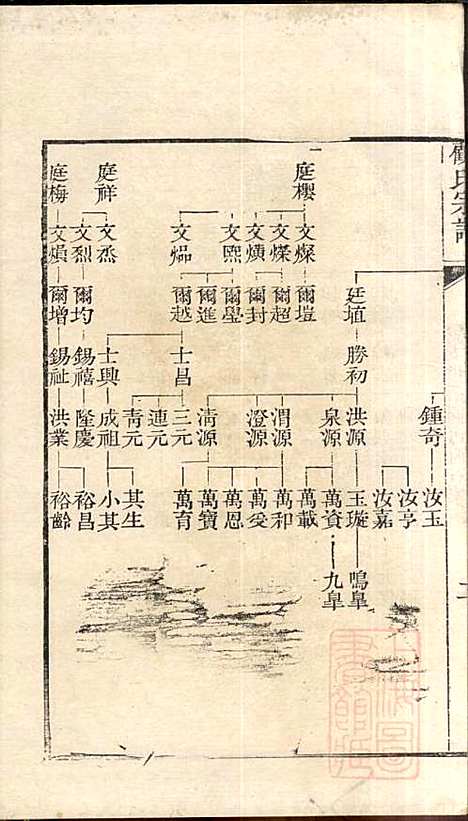 氏宗
鍾奇 汝玉
汝亨
汝嘉
廷埴 勝初 洪源 玉璇 鳴皐
泉源 萬資 九皐
庭櫻 文燦 爾塏 萬載
文 爾超 渭源 萬和
文熿 爾封 澄源 萬受
文熙 爾 萬恩
爾進 清源 萬寶
文 爾越 士昌 三元 萬育
連元
青元 其生
庭祥 文烝 士興 成祖 小其
文烈 爾均 錫禧 隆慶 裕昌
庭梅 文熉 爾增 錫祉 洪業 裕齡
上海圖
書館藏